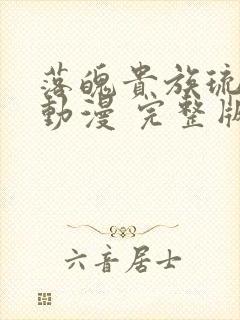 落魄貴族琉
動漫 完整版
六音居士